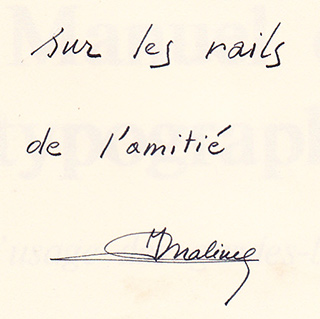 sur les rails
de l'amitié